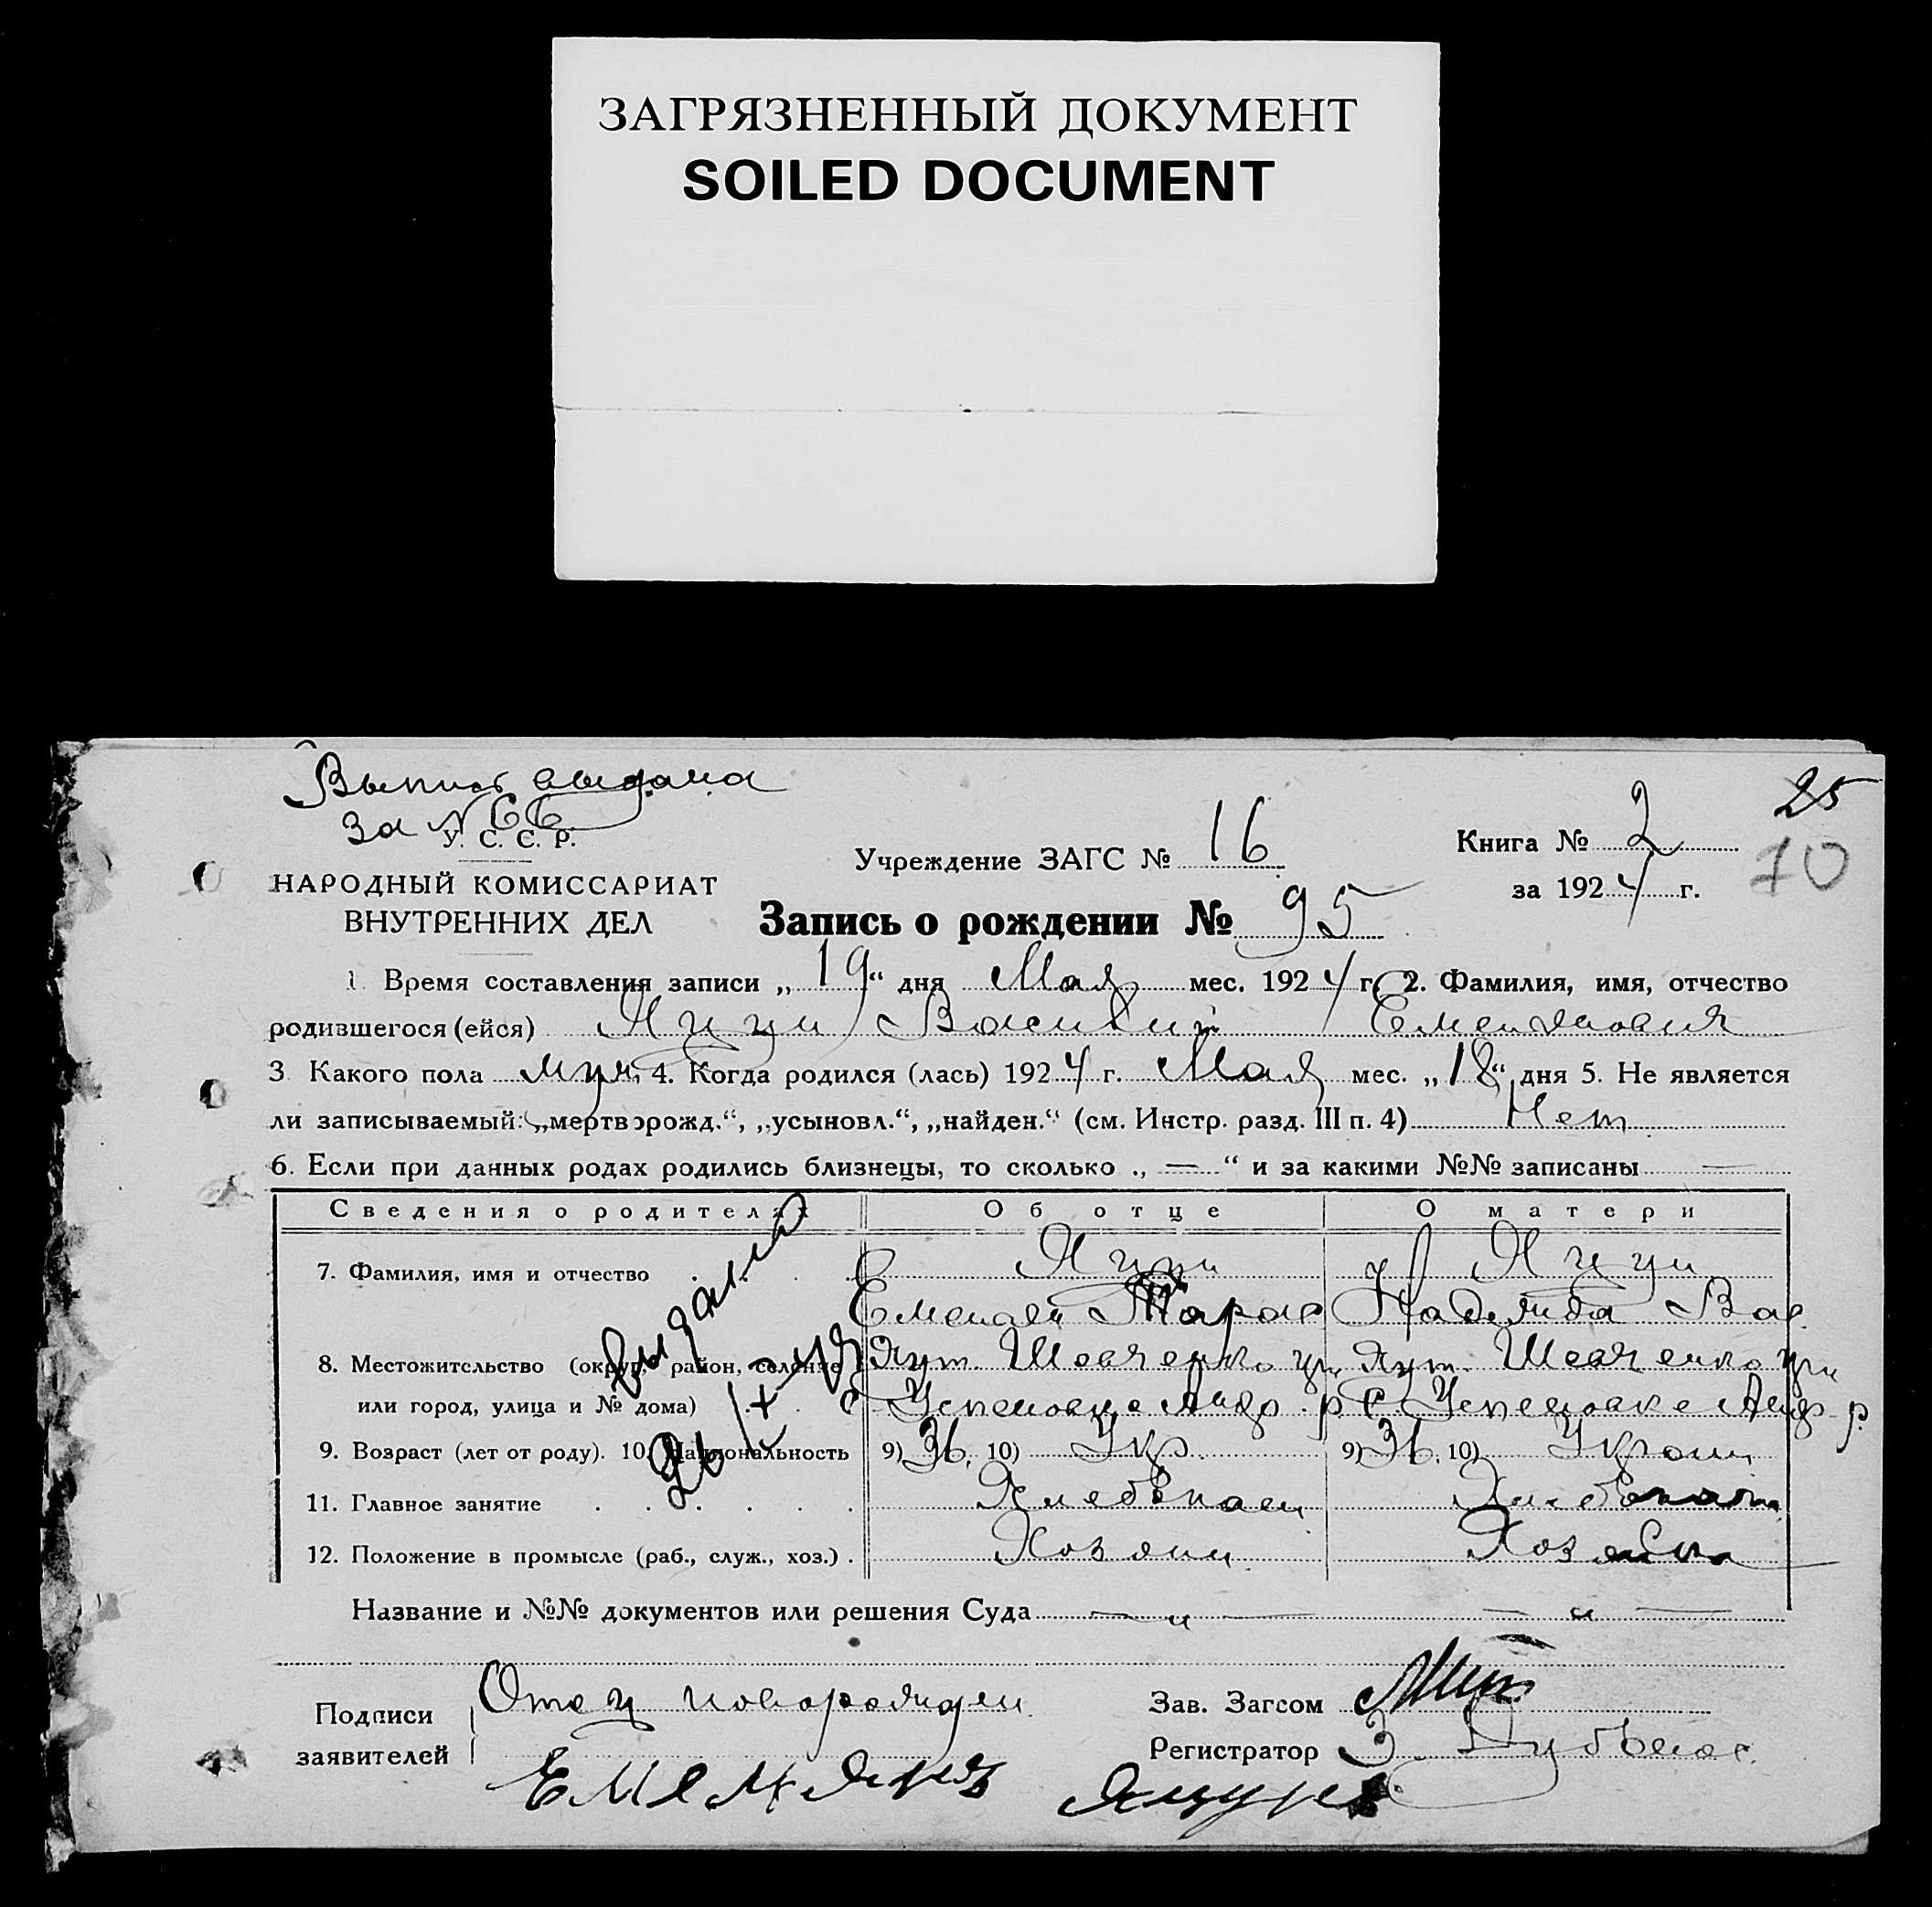 ЗАГРЯЗНЕННЫЙ ДОКУМЕНТ
SOILED DOCUMENT
Выпись выдана
за № 66
25
У. С. С. Р.
НАРОДНЫЙ КОМИССАРИАТ
ВНУТРЕННИХ ДЕЛ
Учреждение ЗАГС № 16
Книга № 2
за 1924 г.
70
Запись о рождении № 95
1. Время составления записи „19“ дня Мая мес. 1924 г. 2. Фамилия, имя, отчество
родившегося (ейся) Яцун Василий Емельянович
3. Какого пола муж. 4. Когда родился (лась) 1924 г. Мая мес. „18“ дня 5. Не является
ли записываемый: „мертворожд.“, „усыновл.“, „найден.“ (см. Инстр. разд. III п. 4) Нет
6. Если при данных родах родились близнецы, то сколько „ — “ и за какими №№ записаны —
Сведения о родителях Об отце О матери
7. Фамилия, имя и отчество Яцун Яцун
Емельян Тарас Надежда Вас.
8. Местожительство (округ, район, селение Хут. Шевченко Хут. Шевченко
или город, улица и № дома) с Успеновке р с. Успеновке р.
9. Возраст (лет от роду). 10. Национальность 9) 36. 10) Укр. 9) 36. 10)
11. Главное занятие Хлебопаш
12. Положение в промысле (раб., служ., хоз.) . Хозяин Хозяйка
выдана
Название и №№ документов или решения Суда — „ — — „ —
Подписи заявителей Отец новорожден
Зав. Загсом
Регистратор
Емельян Яцун